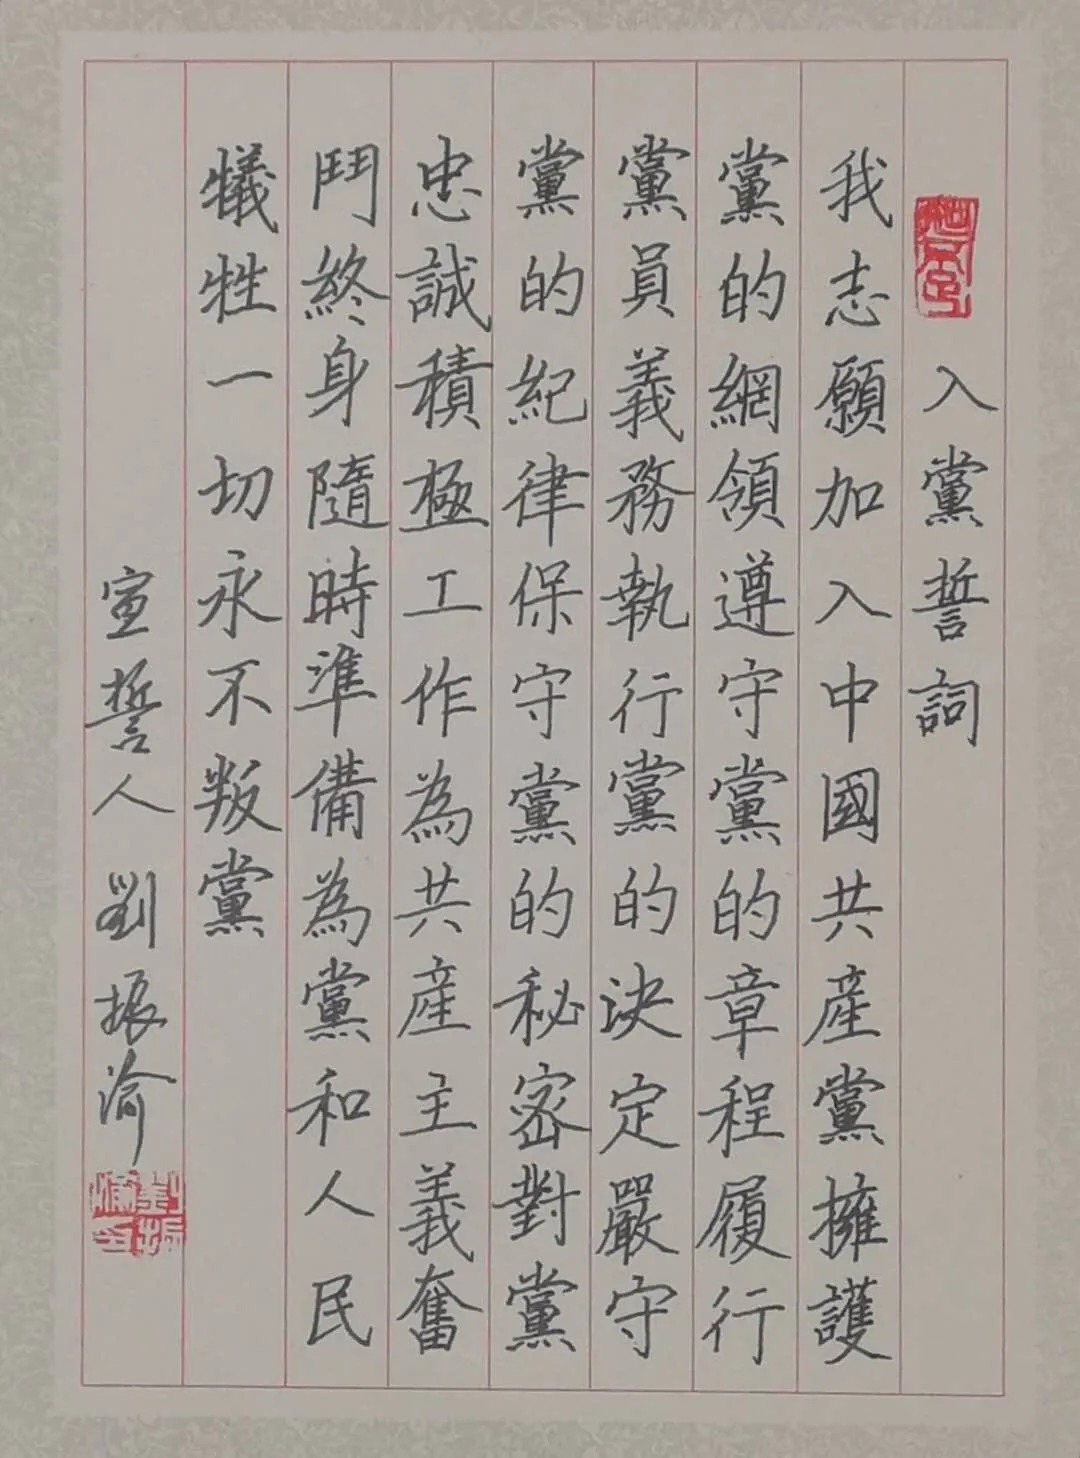 入黨誓詞
我志願加入中國共産黨擁護
黨的網領遵守黨的章程履行
黨員義務執行黨的決定嚴守
黨的紀律保守黨的秘密對黨
忠誠積極工作為共産主義奮
鬥終身隨時準備為黨和人民
犧牲一切永不叛黨
宣誓人劉振渝